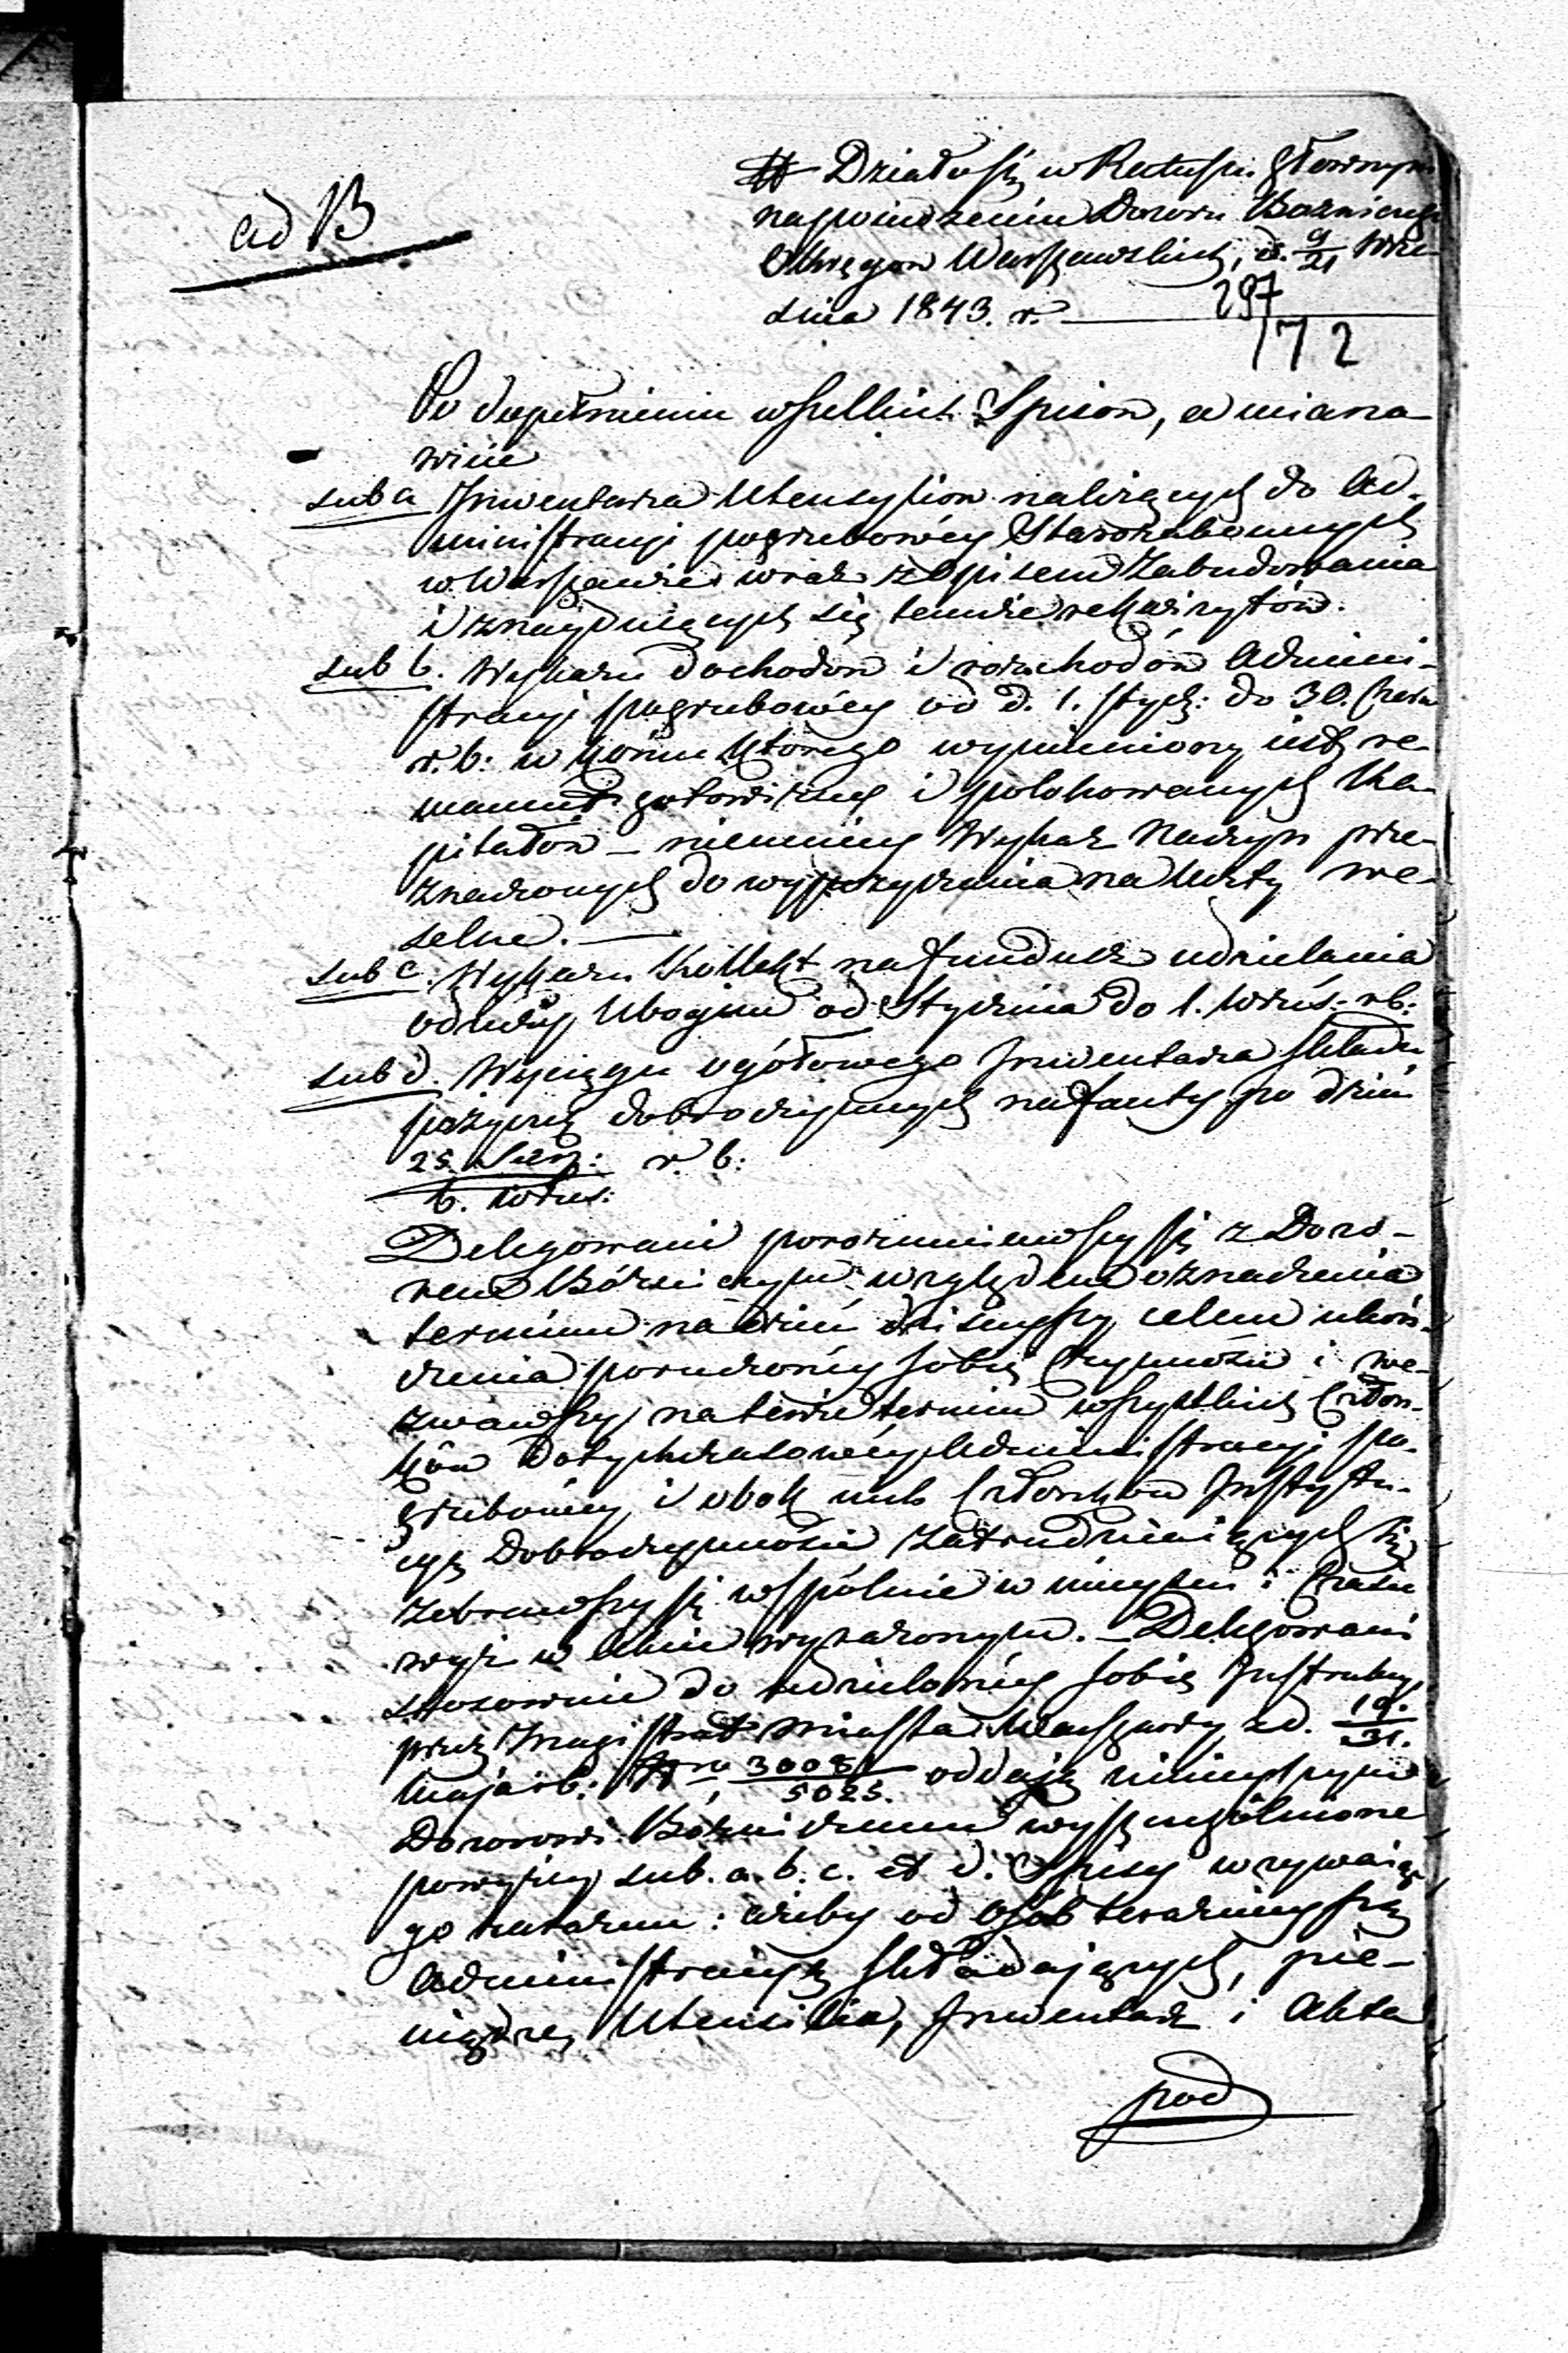 ad B
Działo się w Ratuszu głównym
na posiedzeniu Dozoru Bożniczego
Okręgów Warszawskich, d. 9/21 Wrze-
śnia 1843. r.
297
172
Po dopełnieniu wszelkich Spisów, a miano-
wicie
sub a Inwentarza Utensyliów należących do Ad-
ministracyi pogrzebowéy Starozakonnych
w Warszawie wraz z Opisem Zabudowania
i znayduiących się temże rekwizytów.
sub b. Wykazu dochodów i rozchodów Admini-
stracyi pogrzebowéy od d. 1. stycz: do 30. Czerw
r. b: w końcu którego wymieniony iest re-
manent gotowizny i polokowanych Ka-
pitałów – niemniey Wykaz Naczyń prze-
znaczonych do wypożyczenia na Uczty we-
selne. —
sub c. Wykazu Kollekt na fundusz udzielania
odzieży Ubogim od Stycznia do 1. Wrześ: rb:
sub d. Wyciągu ogółowego Inwentarza Składu
pożyczek dobroczynnych na fanty po dzień
25. Sierp: / 6. Wrześ: r. b:
Delegowani porozumiawszy się z Dozo-
rem Bóżniczym względem oznaczenia
terminu na dzień dzisieyszy celem ukoń-
czenia poruczonéy sobie czynności i we-
zwawszy na tenże termin wszystkich Człon-
ków dotychczasowéy Administracyi po-
grzebowéy i obok nich Członków Instytu-
cyą Dobroczynności zatrudniaiących się
zebrawszy się wspólnie w mieyscu i Czasie
wyż w Akcie wyrażonym. – Delegowani
stosownie do udzielonéy sobie Instrukcyi
przez Magistrat Miasta Warszawy z d. 19./31.
Maja rb: Nro 30081/5025. oddają ninieyszym
Dozorowi Bóżniczemu wyszczególnione
powyżey sub. a. b. c. et d. Spisy wzywaiąc
go zarazem: ażeby od osób teraźnieyszą
Administracyą składających, pie-
niądze, Utensilia, Inwentarz i Akta
pod